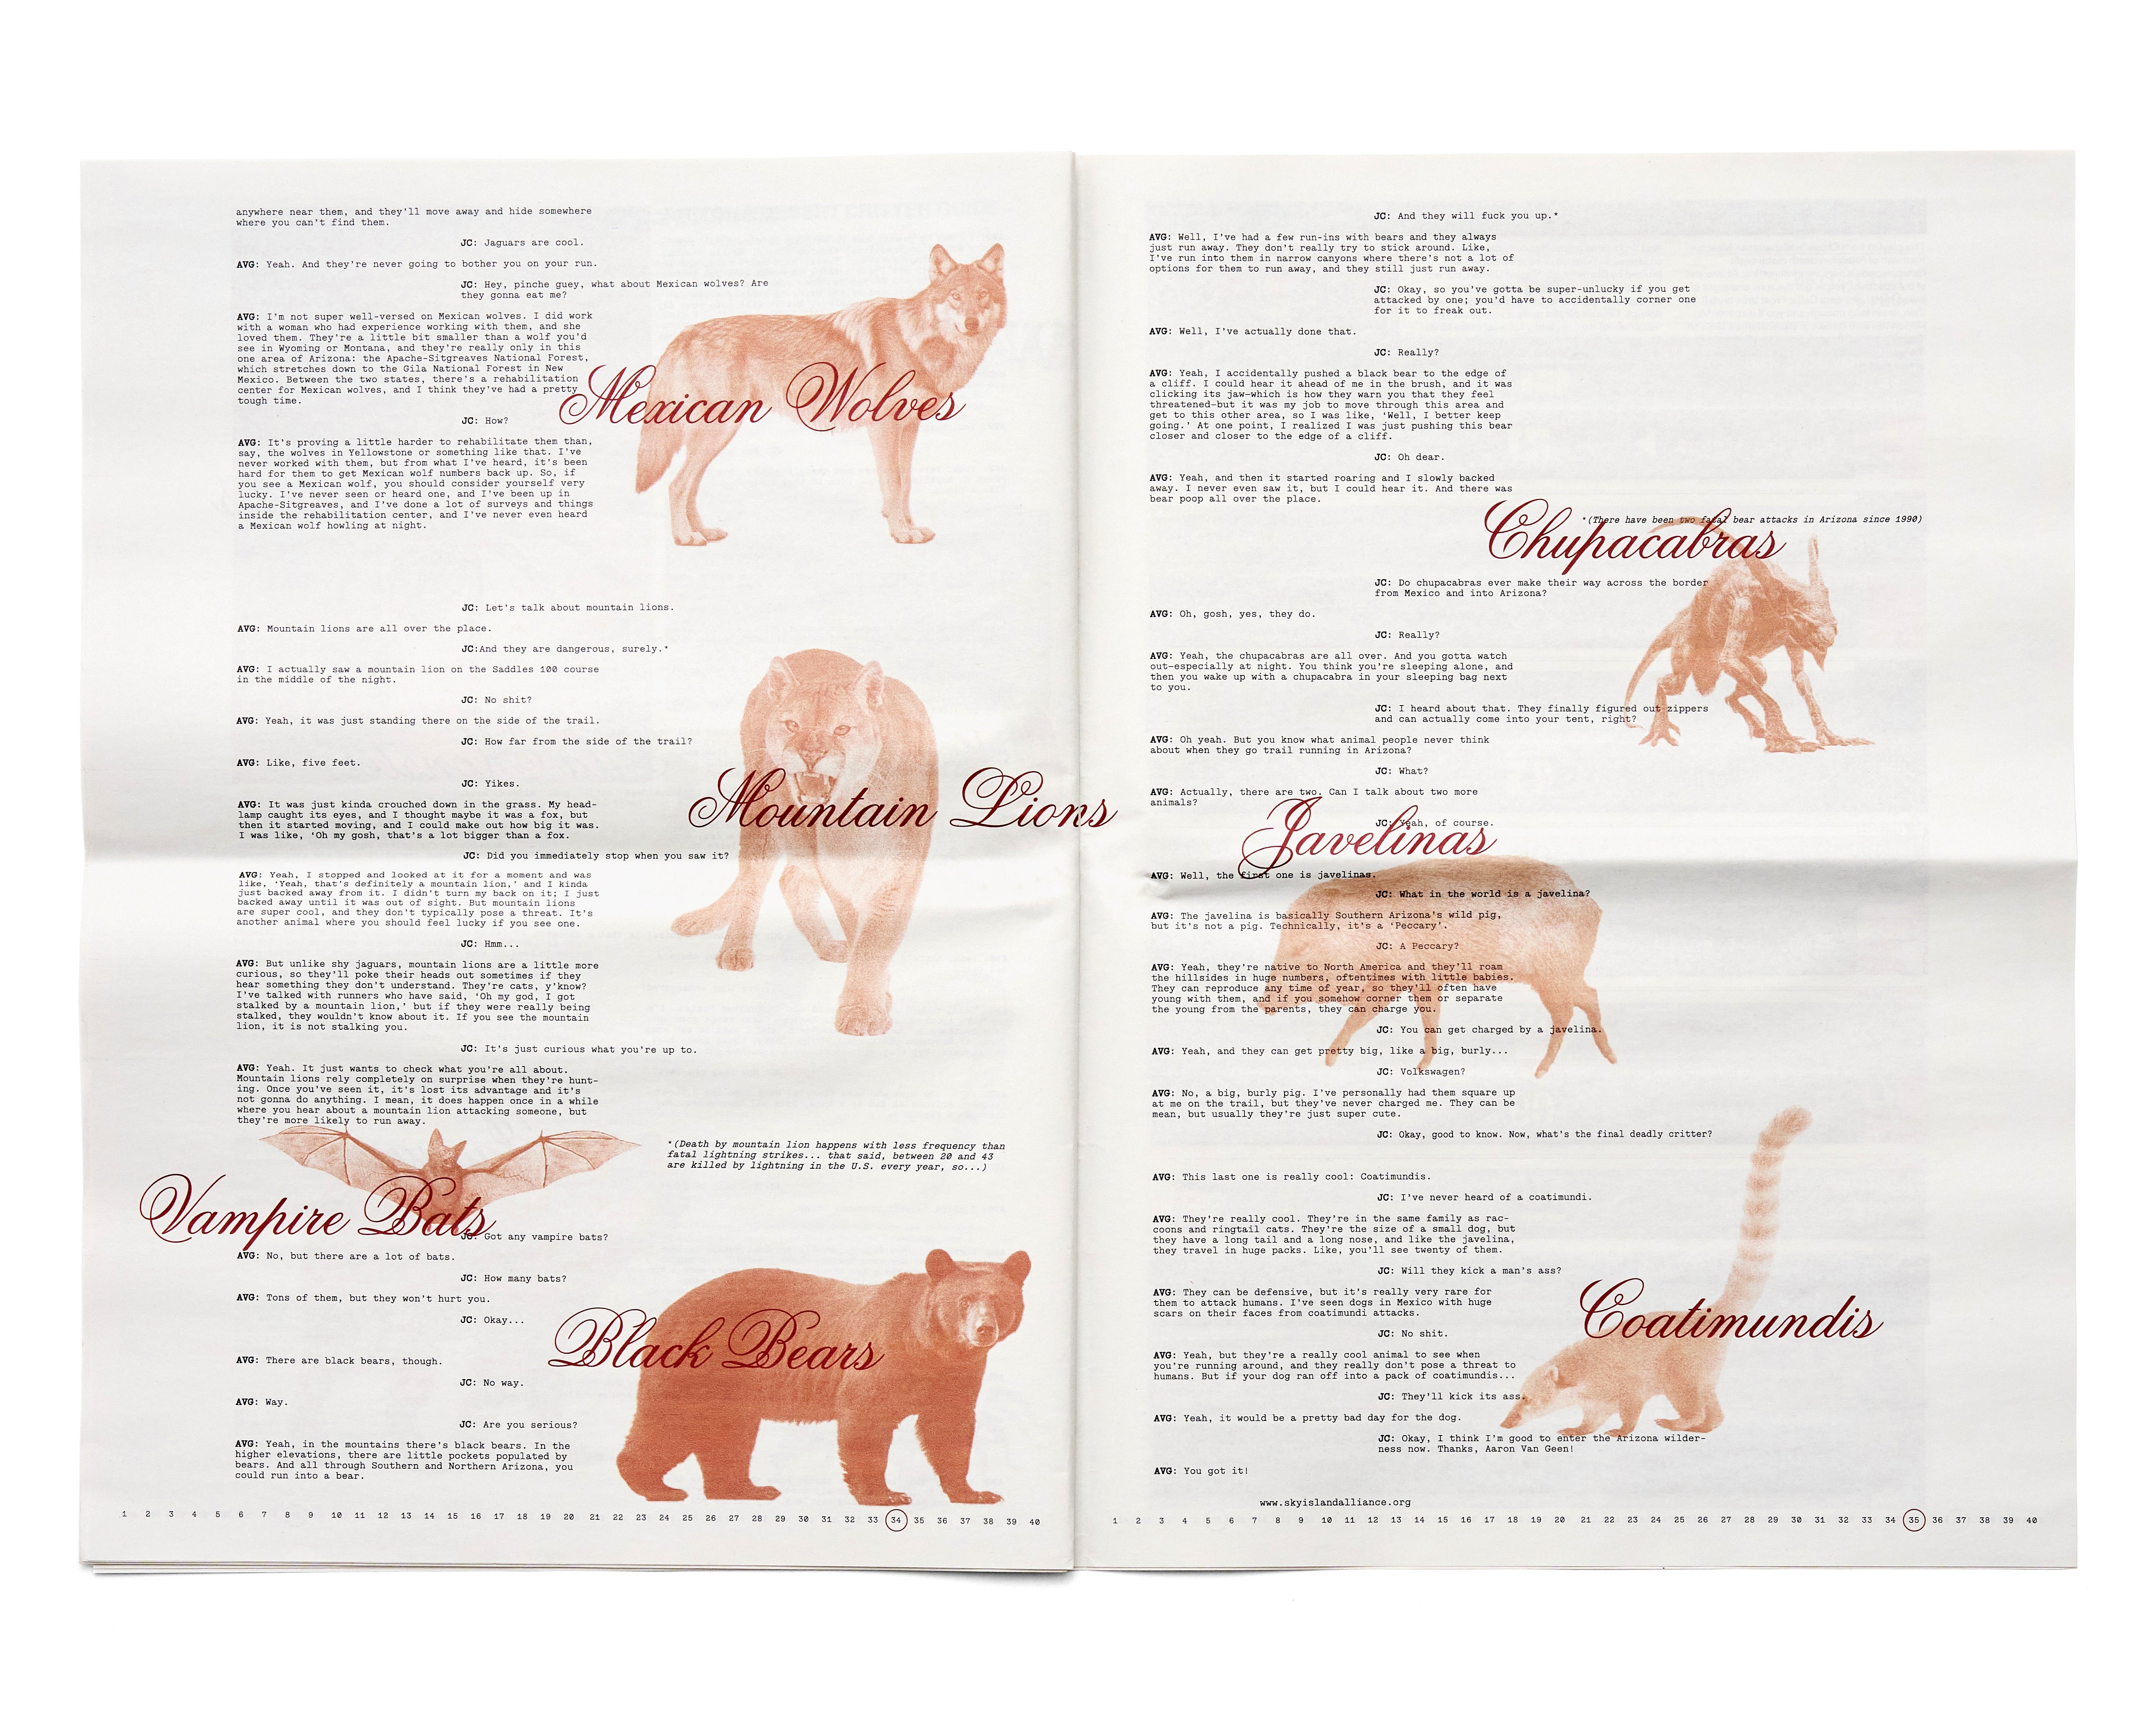 anywhere near them, and they'll move away and hide somewhere
where you can't find them.
JC: Jaguars are cool.
AVG: Yeah. And they're never going to bother you on your run.
JC: Hey, pinche guey, what about Mexican wolves? Are
they gonna eat me?
AVG: I'm not super well-versed on Mexican wolves. I did work
with a woman who had experience working with them, and she
loved them. They're a little bit smaller than a wolf you'd
see in Wyoming or Montana, and they're really only in this
one area of Arizona: the Apache-Sitgreaves National Forest,
which stretches down to the Gila National Forest in New
Mexico. Between the two states, there's a rehabilitation
center for Mexican wolves, and I think they've had a pretty
tough time.
Mexican Wolves
JC: How?
AVG: It's proving a little harder to rehabilitate them than,
say, the wolves in Yellowstone or something like that. I've
never worked with them, but from what I've heard, it's been
hard for them to get Mexican wolf numbers back up. So, if
you see a Mexican wolf, you should consider yourself very
lucky. I've never seen or heard one, and I've been up in
Apache-Sitgreaves, and I've done a lot of surveys and things
inside the rehabilitation center, and I've never even heard
a Mexican wolf howling at night.
JC: Let's talk about mountain lions.
AVG: Mountain lions are all over the place.
JC:And they are dangerous, surely.*
AVG: I actually saw a mountain lion on the Saddles 100 course
in the middle of the night.
JC: No shit?
AVG: Yeah, it was just standing there on the side of the trail.
JC: How far from the side of the trail?
AVG: Like, five feet.
JC: Yikes.
Mountain Lions
AVG: It was just kinda crouched down in the grass. My head-
lamp caught its eyes, and I thought maybe it was a fox, but
then it started moving, and I could make out how big it was.
I was like, 'Oh my gosh, that's a lot bigger than a fox.
JC: Did you immediately stop when you saw it?
AVG: Yeah, I stopped and looked at it for a moment and was
like, 'Yeah, that's definitely a mountain lion,' and I kinda
just backed away from it. I didn't turn my back on it; I just
backed away until it was out of sight. But mountain lions
are super cool, and they don't typically pose a threat. It's
another animal where you should feel lucky if you see one.
JC: Hmm...
AVG: But unlike shy jaguars, mountain lions are a little more
curious, so they'll poke their heads out sometimes if they
hear something they don't understand. They're cats, y'know?
I've talked with runners who have said, 'Oh my god, I got
stalked by a mountain lion,' but if they were really being
stalked, they wouldn't know about it. If you see the mountain
lion, it is not stalking you.
JC: It's just curious what you're up to.
AVG: Yeah. It just wants to check what you're all about.
Mountain lions rely completely on surprise when they're hunt-
ing. Once you've seen it, it's lost its advantage and it's
not gonna do anything. I mean, it does happen once in a while
where you hear about a mountain lion attacking someone, but
they're more likely to run away.
*(Death by mountain lion happens with less frequency than
fatal lightning strikes... that said, between 20 and 43
are killed by lightning in the U.S. every year, so...)
Vampire Bats
JC: Got any vampire bats?
AVG: No, but there are a lot of bats.
JC: How many bats?
AVG: Tons of them, but they won't hurt you.
JC: Okay...
Black Bears
AVG: There are black bears, though.
JC: No way.
AVG: Way.
JC: Are you serious?
AVG: Yeah, in the mountains there's black bears. In the
higher elevations, there are little pockets populated by
bears. And all through Southern and Northern Arizona, you
could run into a bear.
1 2 3 4 5 6 7 8 9 10 11 12 13 14 15 16 17 18 19 20 21 22 23 24 25 26 27 28 29 30 31 32 33 34 35 36 37 38 39 40
JC: And they will fuck you up.*
AVG: Well, I've had a few run-ins with bears and they always
just run away. They don't really try to stick around. Like,
I've run into them in narrow canyons where there's not a lot of
options for them to run away, and they still just run away.
JC: Okay, so you've gotta be super-unlucky if you get
attacked by one; you'd have to accidentally corner one
for it to freak out.
AVG: Well, I've actually done that.
JC: Really?
AVG: Yeah, I accidentally pushed a black bear to the edge of
a cliff. I could hear it ahead of me in the brush, and it was
clicking its jaw—which is how they warn you that they feel
threatened—but it was my job to move through this area and
get to this other area, so I was like, 'Well, I better keep
going.' At one point, I realized I was just pushing this bear
closer and closer to the edge of a cliff.
JC: Oh dear.
AVG: Yeah, and then it started roaring and I slowly backed
away. I never even saw it, but I could hear it. And there was
bear poop all over the place.
*(There have been two fatal bear attacks in Arizona since 1990)
Chupacabras
JC: Do chupacabras ever make their way across the border
from Mexico and into Arizona?
AVG: Oh, gosh, yes, they do.
JC: Really?
AVG: Yeah, the chupacabras are all over. And you gotta watch
out—especially at night. You think you're sleeping alone, and
then you wake up with a chupacabra in your sleeping bag next
to you.
JC: I heard about that. They finally figured out zippers
and can actually come into your tent, right?
AVG: Oh yeah. But you know what animal people never think
about when they go trail running in Arizona?
JC: What?
AVG: Actually, there are two. Can I talk about two more
animals?
JC: Yeah, of course.
Javelinas
AVG: Well, the first one is javelinas.
JC: What in the world is a javelina?
AVG: The javelina is basically Southern Arizona's wild pig,
but it's not a pig. Technically, it's a 'Peccary'.
JC: A Peccary?
AVG: Yeah, they're native to North America and they'll roam
the hillsides in huge numbers, oftentimes with little babies.
They can reproduce any time of year, so they'll often have
young with them, and if you somehow corner them or separate
the young from the parents, they can charge you.
JC: You can get charged by a javelina.
AVG: Yeah, and they can get pretty big, like a big, burly...
JC: Volkswagen?
AVG: No, a big, burly pig. I've personally had them square up
at me on the trail, but they've never charged me. They can be
mean, but usually they're just super cute.
JC: Okay, good to know. Now, what's the final deadly critter?
AVG: This last one is really cool: Coatimundis.
JC: I've never heard of a coatimundi.
AVG: They're really cool. They're in the same family as rac-
coons and ringtail cats. They're the size of a small dog, but
they have a long tail and a long nose, and like the javelina,
they travel in huge packs. Like, you'll see twenty of them.
JC: Will they kick a man's ass?
AVG: They can be defensive, but it's really very rare for
them to attack humans. I've seen dogs in Mexico with huge
scars on their faces from coatimundi attacks.
Coatimundis
JC: No shit.
AVG: Yeah, but they're a really cool animal to see when
you're running around, and they really don't pose a threat to
humans. But if your dog ran off into a pack of coatimundis...
JC: They'll kick its ass.
AVG: Yeah, it would be a pretty bad day for the dog.
JC: Okay, I think I'm good to enter the Arizona wilder-
ness now. Thanks, Aaron Van Geen!
AVG: You got it!
www.skyislandalliance.org
1 2 3 4 5 6 7 8 9 10 11 12 13 14 15 16 17 18 19 20 21 22 23 24 25 26 27 28 29 30 31 32 33 34 35 36 37 38 39 40